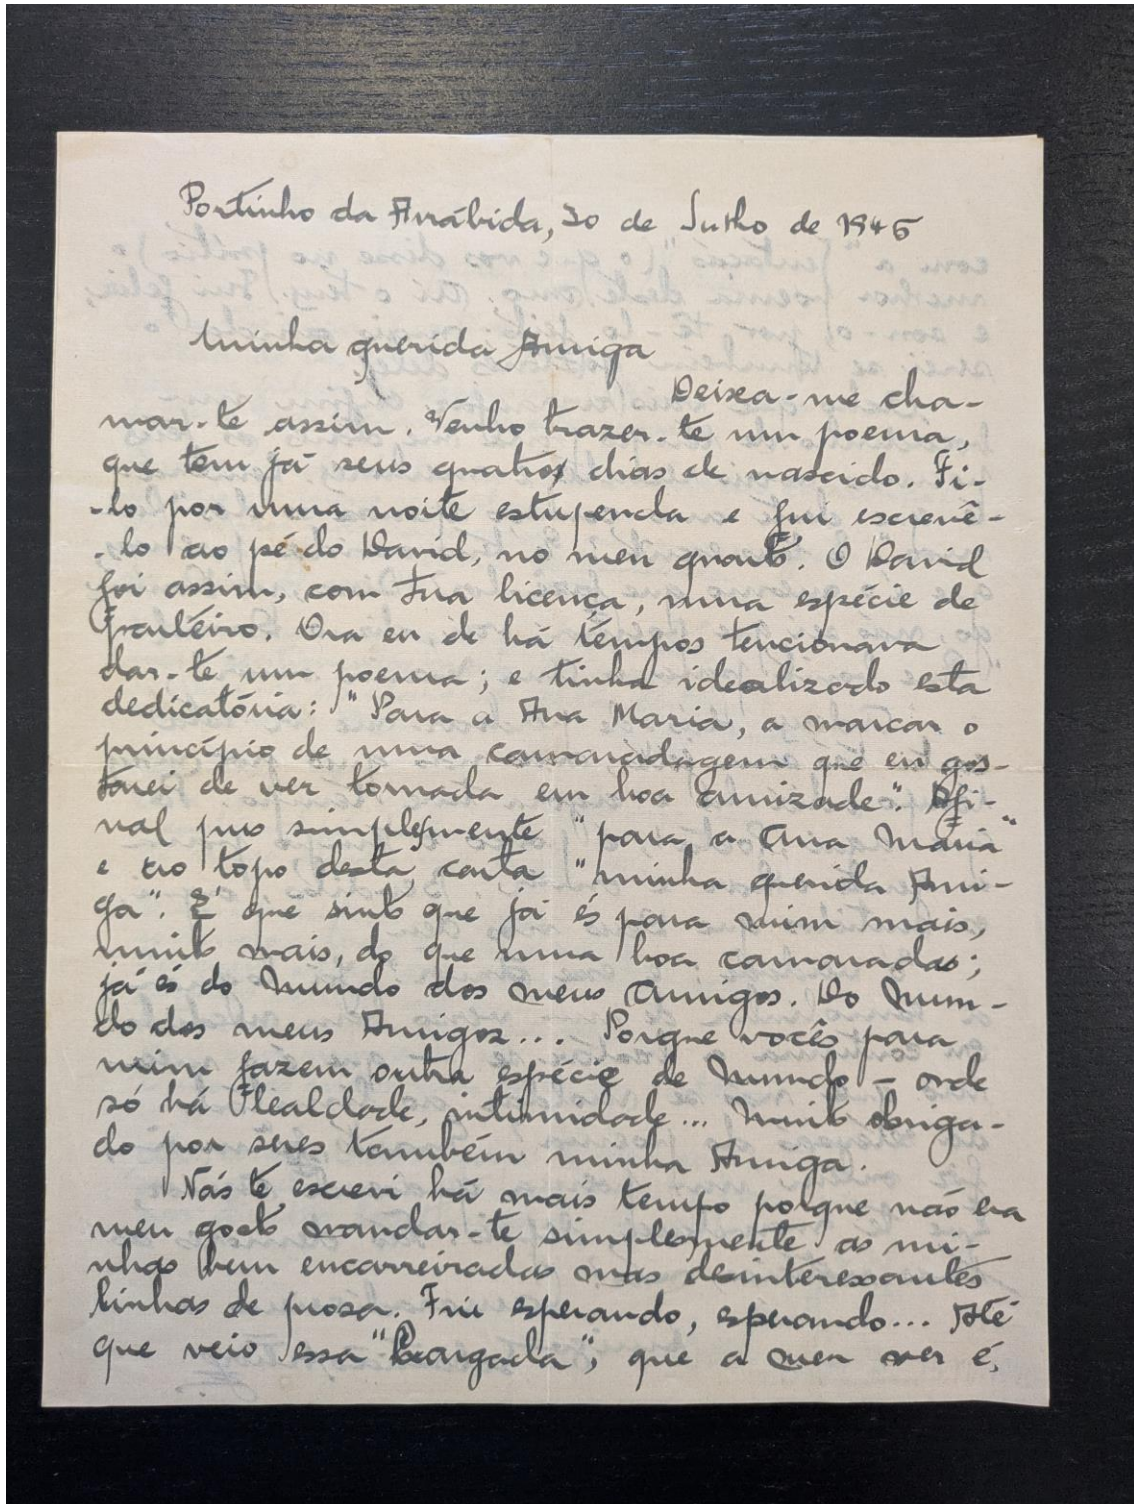 Portinho da Arrábida, 20 de Julho de 1946
Minha querida Amiga
Deixa-me cha-
mar-te assim. Venho trazer-te um poema,
que tem já seus quatro dias de nascido. Fi-
-lo por uma noite estupenda e fui escrevê-
-lo ao pé do David, no meu quarto. O David
foi assim, com tua licença, uma espécie de
parteiro. Ora eu de há tempos tencionava
dar-te um poema; e tinha idealizado esta
dedicatória: "Para a Ana Maria, a marcar o
princípio de uma camaradagem que eu gos-
tarei de ver tornada em boa amizade". Afi-
nal pus simplesmente "para a Ana Maria"
e ao topo desta carta "minha querida Ami-
ga". É que sinto que já és para mim mais,
muito mais, do que uma boa camarada;
já és do Mundo dos meus Amigos. Do Mun-
do dos meus Amigos... Porque vocês para
mim fazem outra espécie de Mundo – onde
só há lealdade, intimidade... Muito obriga-
do por seres também minha Amiga.
Não te escrevi há mais tempo porque não era
meu gosto mandar-te simplesmente as mi-
nhas bem encarreiradas mas desinteressantes
linhas de prosa. Fui esperando, esperando... Até
que veio essa, que a meu ver é,